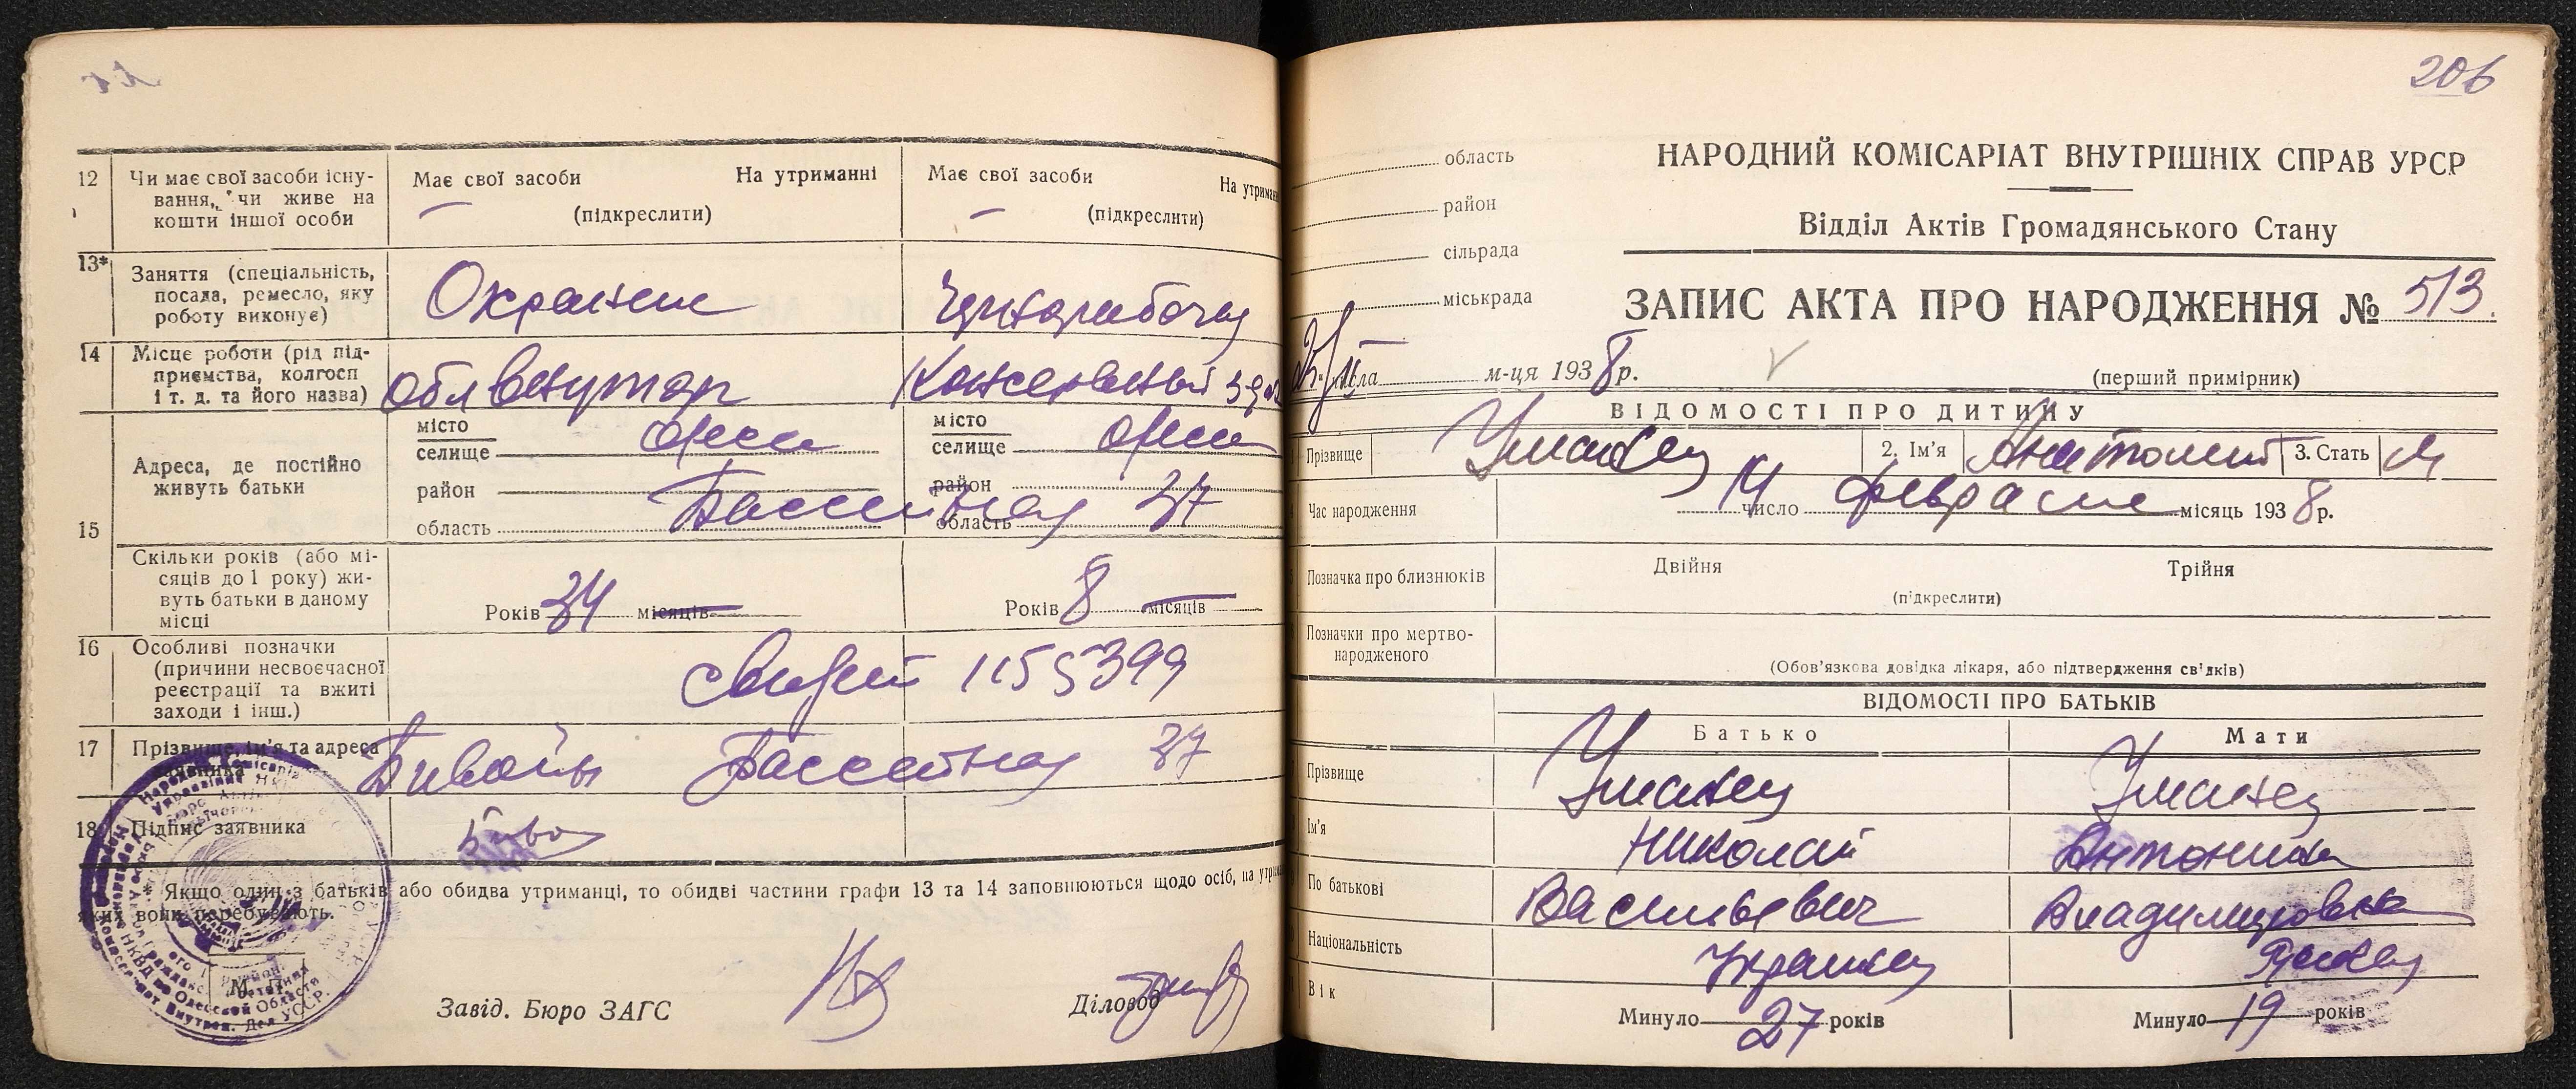 12 Чи має свої засоби існу-
вання, чи живе на
кошти іншої особи
Має свої засоби На утриманні
(підкреслити)
Має свої засоби На утриман
(підкреслити)
13* Заняття (спеціальність,
посада, ремесло, яку
роботу виконує)
14 Місце роботи (рід під-
приємства, колгосп
і т. д. та його назва)
Облвнуторг
Консервный
15 Адреса, де постійно
живуть батьки
місто
селище Одесса
район
область
місто
селище Одесса
район
область
Бассейная 37
Скільки років (або мі-
сяців до 1 року) жи-
вуть батьки в даному
місці
Років 24 місяців
Років 8 місяців
16 Особливі позначки
(причини несвоєчасної
реєстрації та вжиті
заходи і інш.)
1155399
17 Прізвище, ім'я та адреса
заявника
Бассейная 37
18 Підпис заявника
* Якщо один з батьків або обидва утриманці, то обидві частини графи 13 та 14 заповнюються щодо осіб, на утрим
яких вони перебувають.
М. П.
Завід. Бюро ЗАГС
Діловод
206
область
район
сільрада
міськрада
НАРОДНИЙ КОМІСАРІАТ ВНУТРІШНІХ СПРАВ УРСР
Відділ Актів Громадянського Стану
ЗАПИС АКТА ПРО НАРОДЖЕННЯ № 513.
числа м-ця 1938 р.
(перший примірник)
ВІДОМОСТІ ПРО ДИТИНУ
Прізвище Уманец 2. Ім'я Анатолий 3. Стать М
Час народження 14 число февраля місяць 1938 р.
Позначка про близнюків Двійня Трійня
(підкреслити)
Позначки про мертво-
народженого
(Обов'язкова довідка лікаря, або підтвердження свідків)
ВІДОМОСТІ ПРО БАТЬКІВ
Батько Мати
Прізвище Уманец Уманец
Ім'я Николай Антонина
По батькові Васильевич Владимировна
Національність Украинец Русская
Вік
Минуло 27 років Минуло 19 років